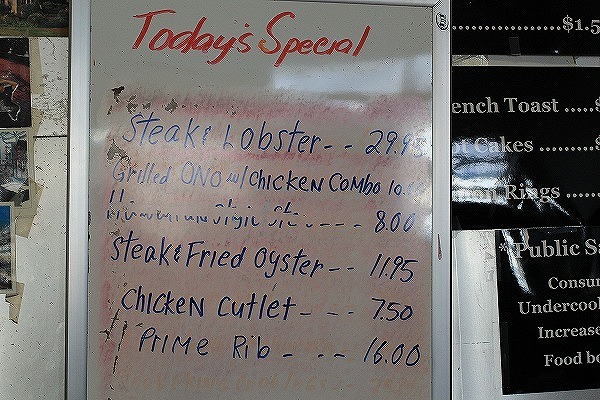 Today's Special
Steak & Lobster - - 29.95
Grilled ONO w/ CHICKEN COMBO
8.00
Steak & Fried Oyster - - - 11.95
CHICKEN CUTLET - - - 7.50
PRIME Rib - - - 16.00
$1.5
ench Toast .....$
Cakes
Rings
*Public Sa
Consum
Undercook
Increase
Food bo